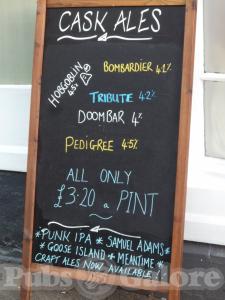 CASK ALES
BOMBARDIER 4.1%
HOBGOBLIN
4.5%
TRIBUTE 4.2%
DOOMBAR 4%
PEDIGREE 4.5%
ALL ONLY
£3.20 a PINT
*PUNK IPA * SAMUEL ADAMS *
* GOOSE ISLAND * MEANTIME *
CRAFT ALES NOW AVAILABLE !
Pubs Galore